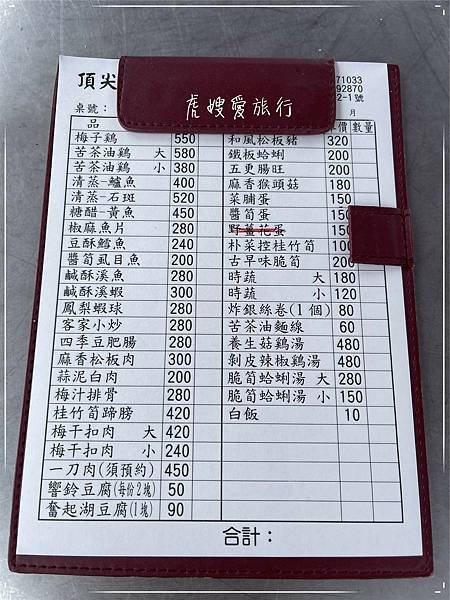 頂尖
虎嫂愛旅行
71033
92870
2-1號
桌號：
月
品
價 數量
梅子鷄 550
苦茶油鷄 大 580
苦茶油鷄 小 380
清蒸-鱸魚 400
清蒸-石斑 520
糖醋-黃魚 450
椒麻魚片 280
豆酥鱈魚 240
醬筍虱目魚 200
鹹酥溪魚 280
鹹酥溪蝦 300
鳳梨蝦球 280
客家小炒 280
四季豆肥腸 280
麻香松板肉 300
蒜泥白肉 200
梅汁排骨 280
桂竹筍蹄膀 420
梅干扣肉 大 420
梅干扣肉 小 240
一刀肉(須預約) 450
響鈴豆腐(每份2塊) 50
奮起湖豆腐(1塊) 90
和風松板豬 320
鐵板蛤蜊 200
五更腸旺 200
麻香猴頭菇 180
菜脯蛋 150
醬筍蛋 150
野薑花蛋 150
朴菜控桂竹筍 100
古早味脆筍 200
時蔬 大 180
時蔬 小 120
炸銀絲卷(1個) 80
苦茶油麵線 60
養生菇鷄湯 480
剝皮辣椒鷄湯 480
脆筍蛤蜊湯 大 280
脆筍蛤蜊湯 小 150
白飯 10
合計：